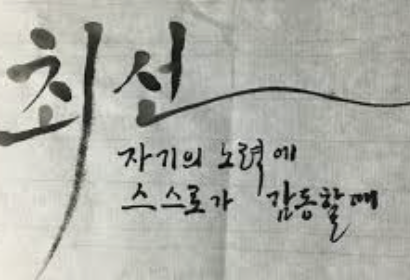 최선
자기의 노력에
스스로가 감동할 때